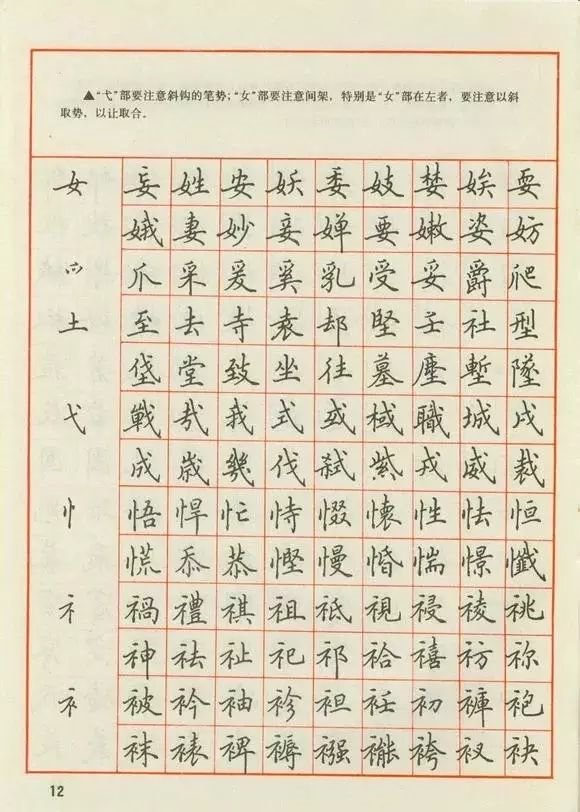 ▲“弋”部要注意斜钩的笔势；“女”部要注意间架，特别是“女”部在左者，要注意以斜
取势，以让取合。
女 妄 姓 安 妖 委 妓 婪 娭 耍
娥 妻 妙 妾 婵 要 嫩 姿 妨
爫 爪 采 爰 奚 乳 受 妥 爵 爬
土 至 去 寺 袁 却 堅 王 社 型
垡 堂 致 坐 往 墓 塵 塹 墜
弋 戰 哉 我 式 或 棫 職 城 戍
成 歲 幾 伐 弑 戎 威 裁
忄 悟 悍 忙 恃 惙 懷 性 怯 恒
慌 忝 恭 慳 慢 惛 惴 憬 懺
礻 禍 禮 祺 祖 祗 視 祲 祾 祧
神 祛 祉 祀 祁 祫 禧 祊 祢
衤 被 衿 袖 袗 袒 衽 初 褲 袍
袜 裱 裨 褥 襁 袴 衩 袂
12